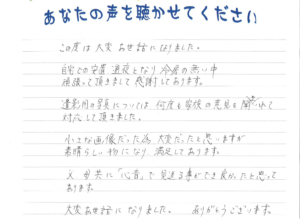 あなたの声を聴かせてください
この度は大変お世話になりました。
自宅での安置、通夜となり今居の無い中
頑張って頂きまして感謝しております。
遺影用の写真については何度も家族の意見を聞いて
対応して頂きました。
小さな画像だった為大変だったと思いますが
素晴らしい物になり満足しております。
父母共に「心音」で見送る事ができ良かったと思って
おります。
大変お世話になりました。ありがとうございます。